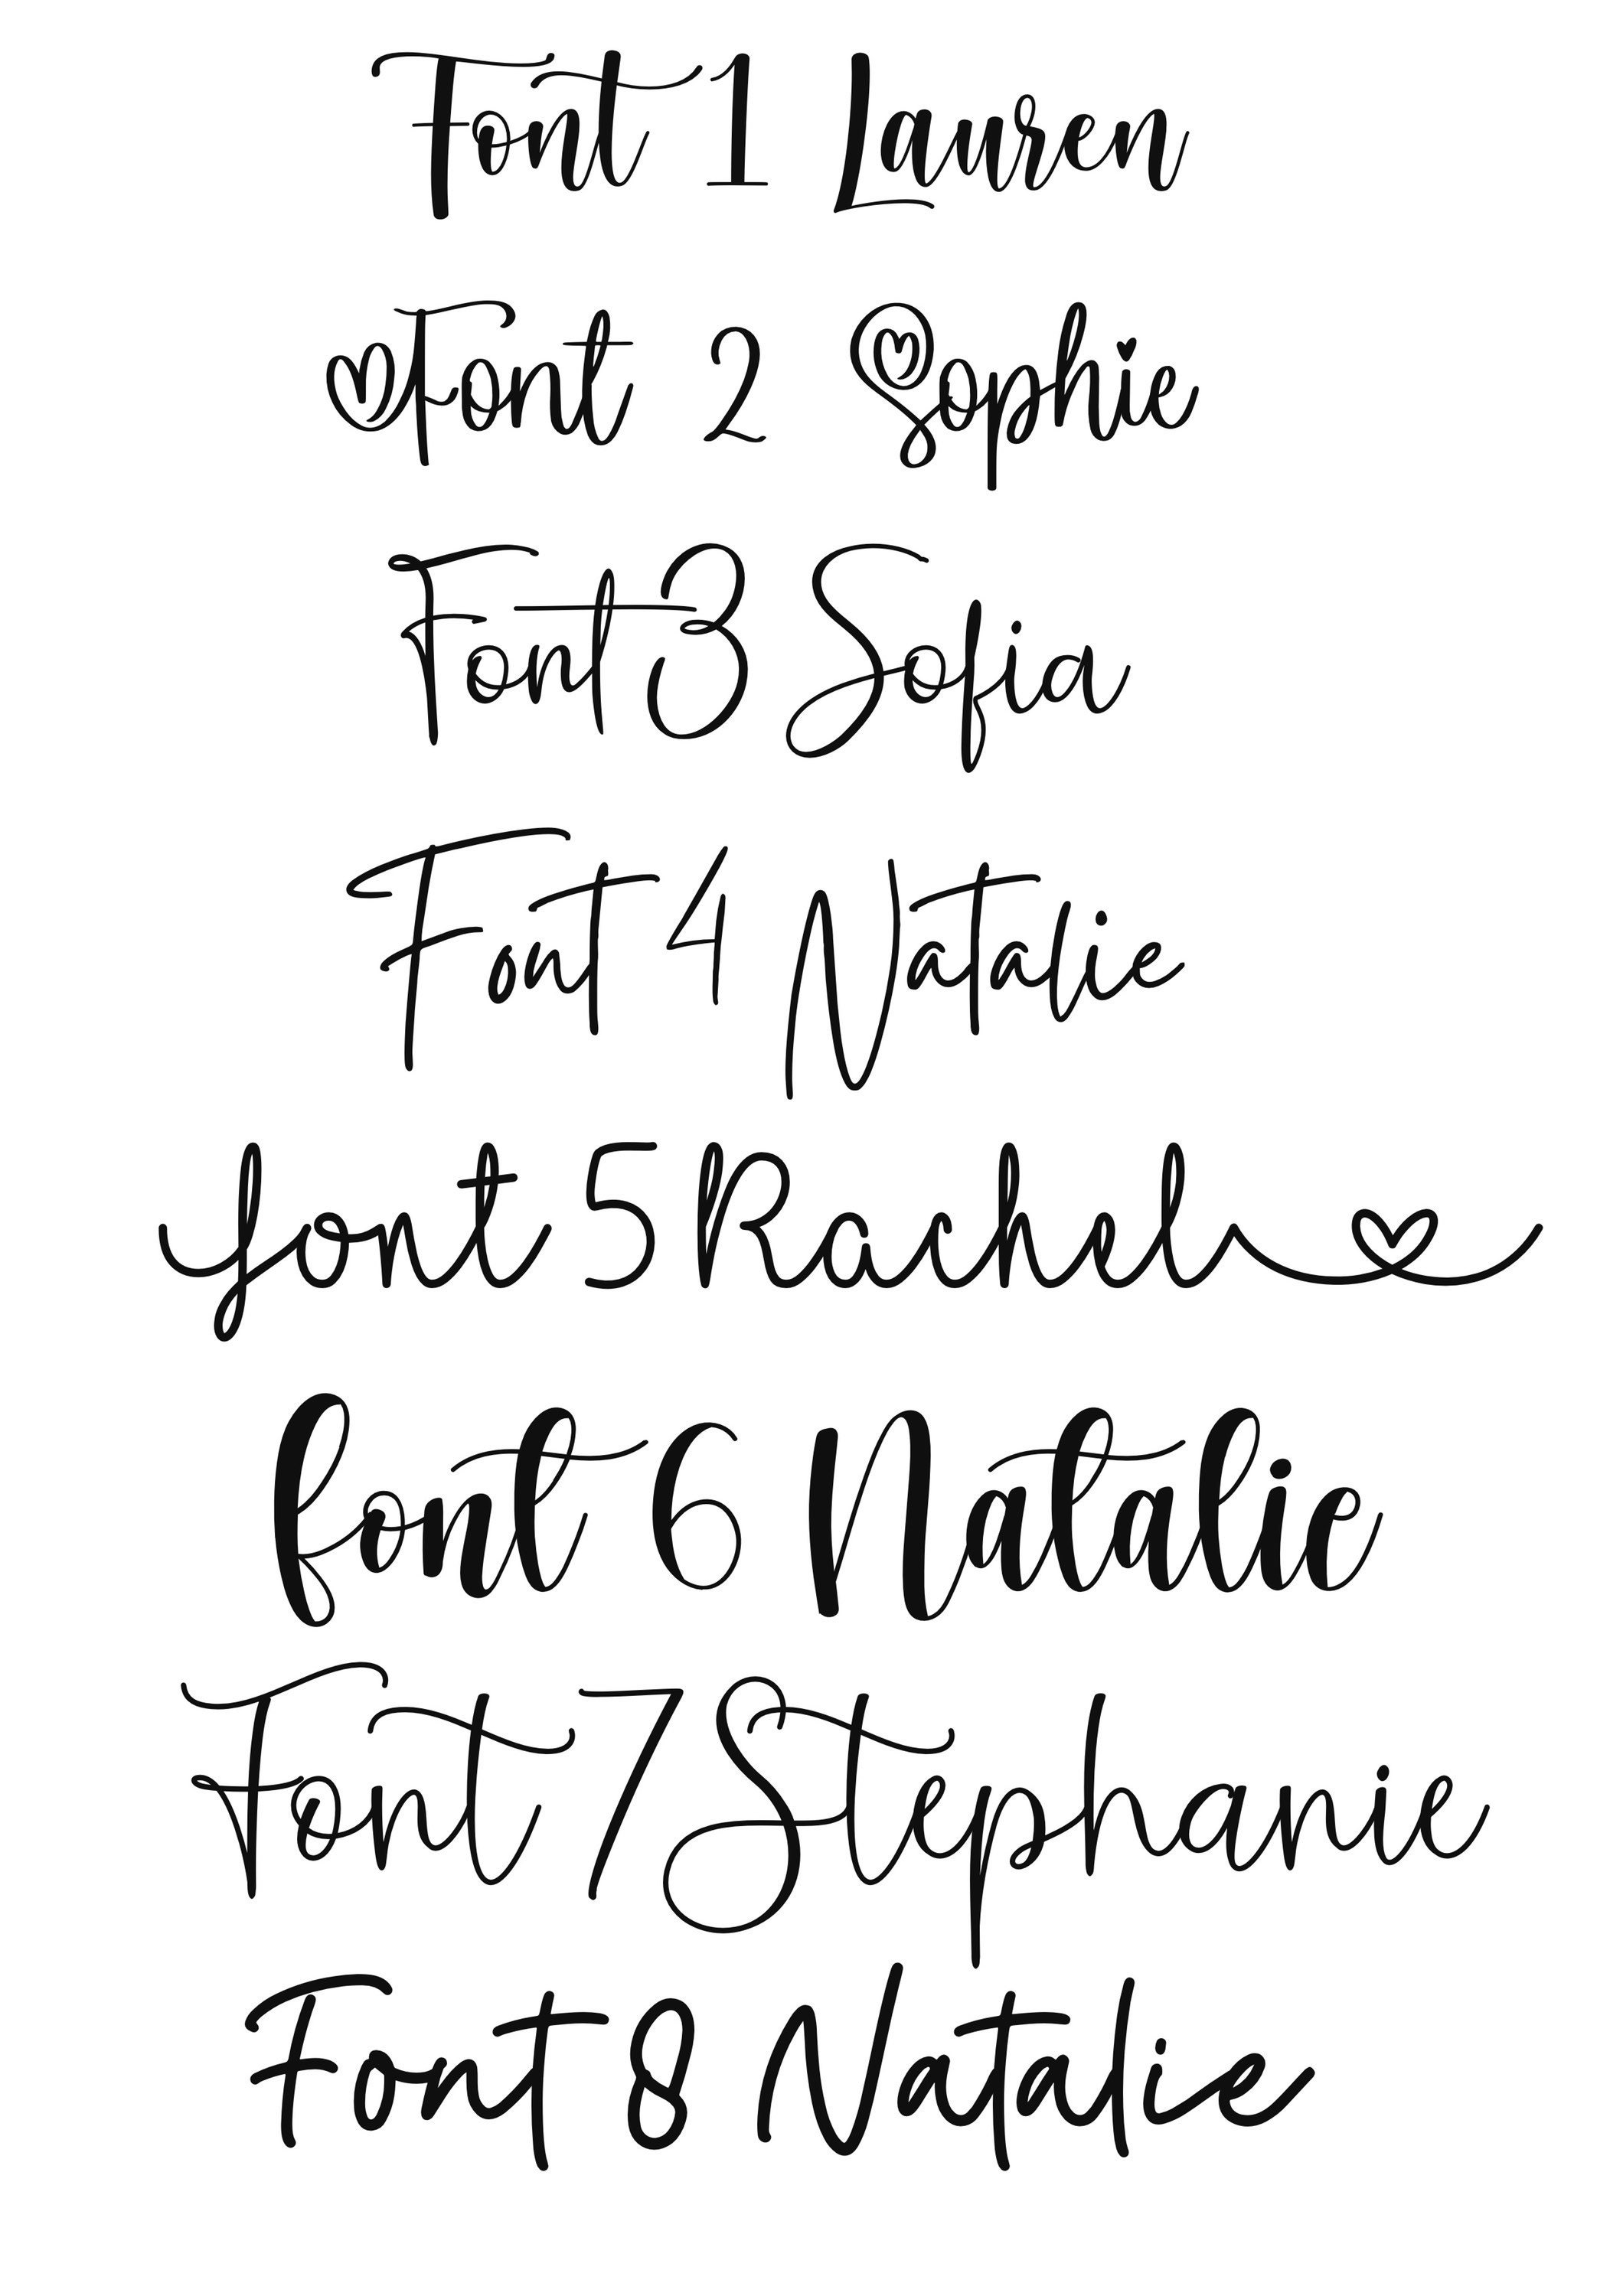 Font 1 Lauren
Font 2 Sophie
Font 3 Sofia
Font 4 Natalie
font 5 Rachel
font 6 Natalie
Font 7 Stephanie
Font 8 Natalie